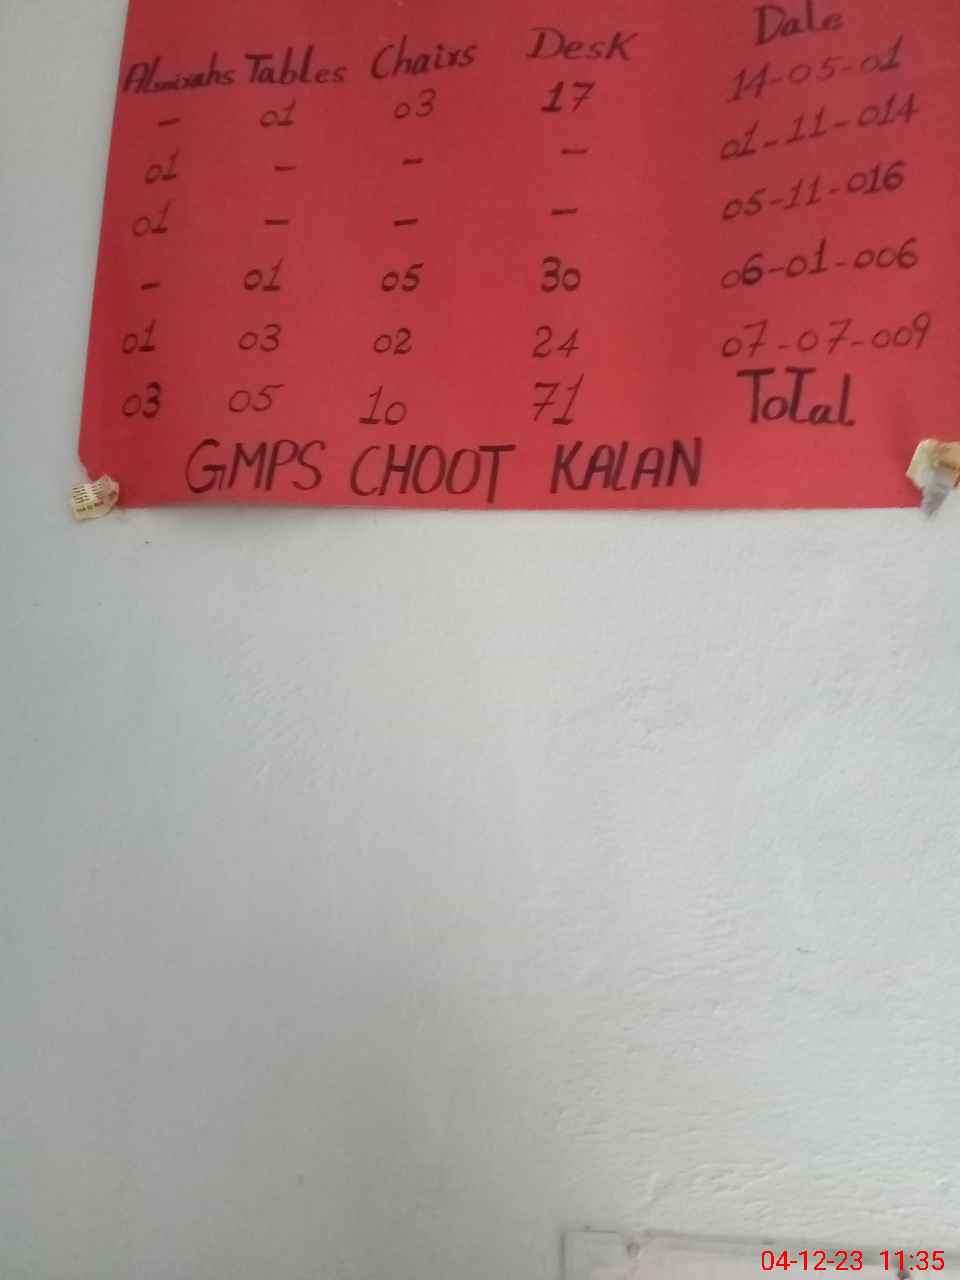 Almirahs Tables Chairs Desk Date
- 01 03 17 14-05-01
01 - - - 01-11-014
01 - - - 05-11-016
- 01 05 30 06-01-006
01 03 02 24 07-07-009
03 05 10 71 Total
GMPS CHOOT KALAN
04-12-23 11:35